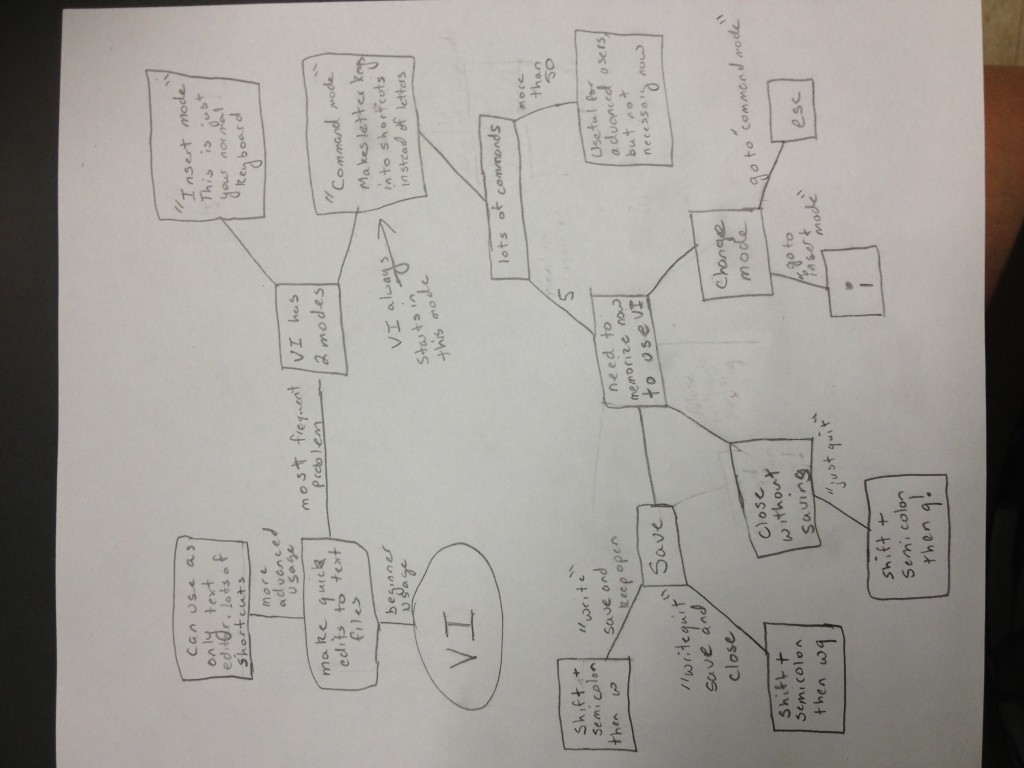 can use as
only text
editor. lots of
shortcuts
more
advanced
usage
make quick
edits to text
files
beginner
usage
VI
most frequent
problem
VI has
2 modes
"Insert mode"
This is just
your normal
keyboard
"Command mode"
Makes letter keys
into shortcuts
instead of letters
VI always
starts in
this mode
lots of commands
more
than
50
Useful for
advanced users,
but not
necessary now
5
need to
memorize now
to use VI
Save
"write"
save and
keep open
shift +
semicolon
then w
"writequit"
save and
close
shift +
semicolon
then wq
close
without
saving
"just quit"
shift +
semicolon
then q!
change
mode
go to "command mode"
esc
"go to
insert
mode"
i